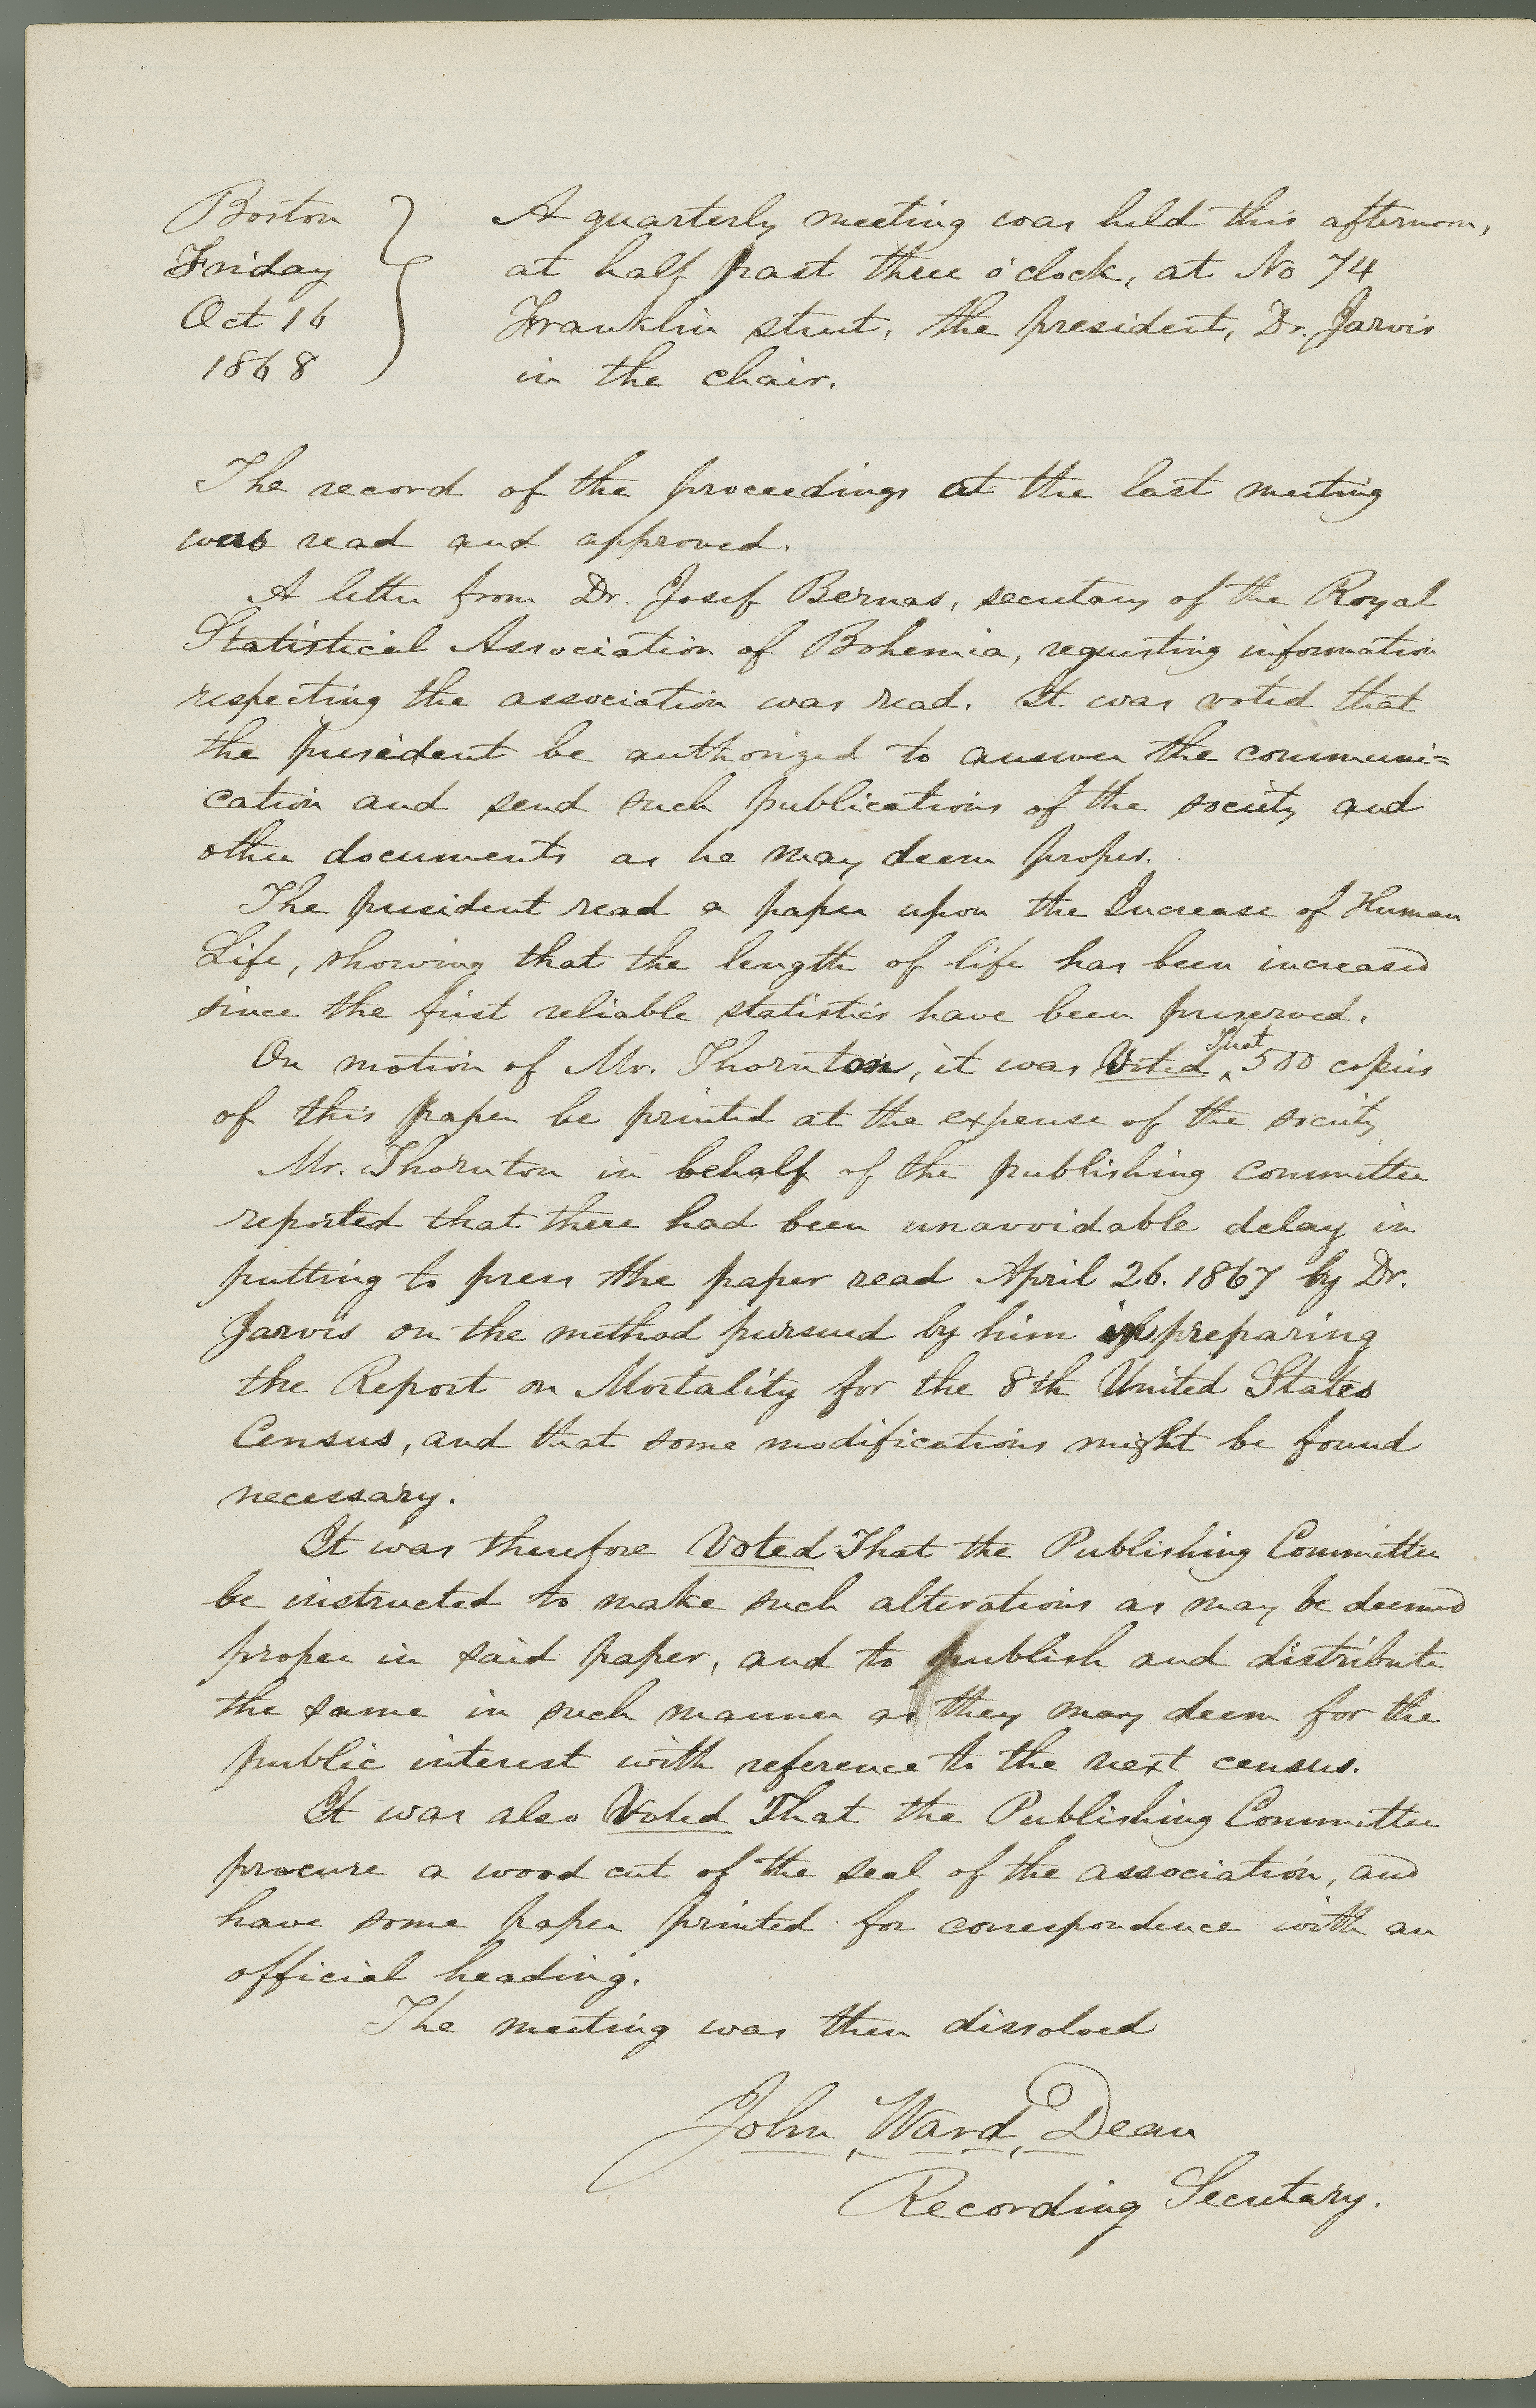 Boston
Friday
Oct 16
1868
A quarterly meeting was held this afternoon,
at half past three o'clock, at No 74
Franklin street, the president, Dr. Jarvis
in the chair.
The record of the proceedings at the last meeting
was read and approved.
A letter from Dr. Josef Bernas, secretary of the Royal
Statistical Association of Bohemia, requesting information
respecting the association was read. It was voted that
the president be authorized to answer the communi=
cation and send such publications of the society and
other documents as he may deem proper.
The president read a paper upon the Increase of Human
Life, showing that the length of life has been increased
since the first reliable statistics have been preserved.
On motion of Mr. Thornton, it was Voted That 500 copies
of this paper be printed at the expense of the society
Mr. Thornton in behalf of the publishing committee
reported that there had been unavoidable delay in
putting to press the paper read April 26. 1867 by Dr.
Jarvis on the method pursued by him in preparing
the Report on Mortality for the 8th United States
Census, and that some modifications might be found
necessary.
It was therefore Voted That the Publishing Committee
be instructed to make such alterations as may be deemed
proper in said paper, and to publish and distribute
the same in such manner as they may deem for the
public interest with reference to the next census.
It was also Voted That the Publishing Committee
procure a wood cut of the seal of the association, and
have some paper printed for correspondence with an
official heading.
The meeting was then dissolved
John Ward Dean
Recording Secretary.